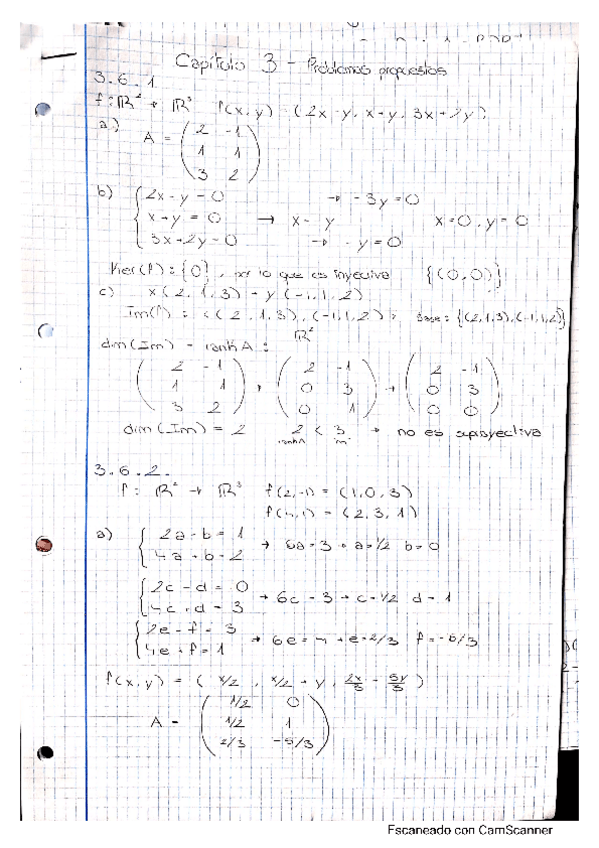 Capítulo 3 - Problemas propuestos
3.6.1
f: ℝ² → ℝ³ f(x,y) = (2x-y, x+y, 3x+2y)
a) A = (2 -1
1 1
3 2)
b) { 2x-y=0 → -3y=0
x+y=0 → x=-y x=0, y=0
3x+2y=0 → -y=0
Ker(f): {0}, por lo que es inyectiva {(0,0)}
c) x(2,1,3) + y(-1,1,2)
Im(f) = <(2,1,3), (-1,1,2)> Base: {(2,1,3), (-1,1,2)}
dim(Im) = rank A:
(2 -1 → (2 -1 → (2 -1
1 1 0 3 0 3
3 2) 0 1) 0 0)
dim(Im) = 2 2 < 3 → no es suprayectiva
3.6.2.
f: ℝ² → ℝ³ f(2,-1) = (1,0,3)
f(4,1) = (2,3,1)
a) { 2a-b=1
4a+b=2 → 6a=3 → a=1/2 b=0
{ 2c-d=0
4c+d=3 → 6c=3 → c=1/2 d=1
{ 2e-f=3
4e+f=1 → 6e=4 → e=2/3 f=-5/3
f(x,y) = (x/2, x/2+y, 2x/3 - 5y/3)
A = (1/2 0
1/2 1
2/3 -5/3)
Escaneado con CamScanner